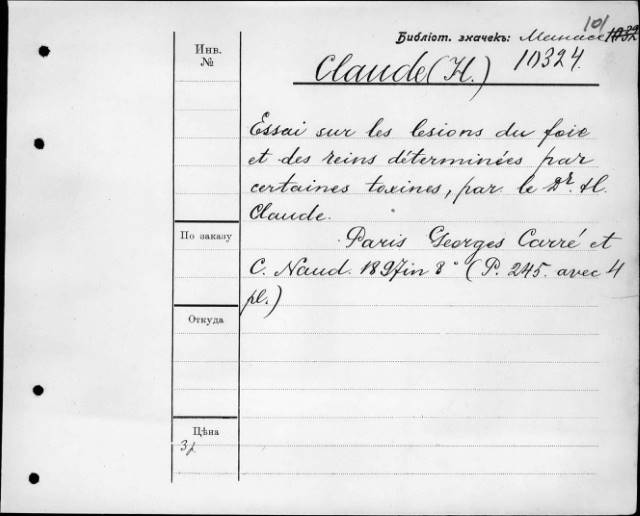 101
Библіот. значекъ:
Инв.
№
10324
Claude (H.)
Essai sur les lesions du foie
et des reins déterminées par
certaines toxines, par le Dr. H.
Claude.
По заказу
Paris Georges Carré et
C. Naud. 1897 in 8° (P. 245. avec 4
pl.)
Откуда
Цѣна